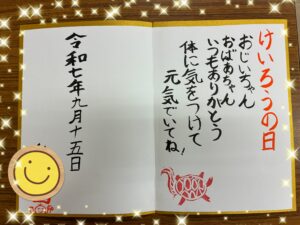 けいろうの日
おじいちゃん
おばあちゃん
いつもありがとう
体に気をつけて
元気でいてね!
令和七年九月十五日